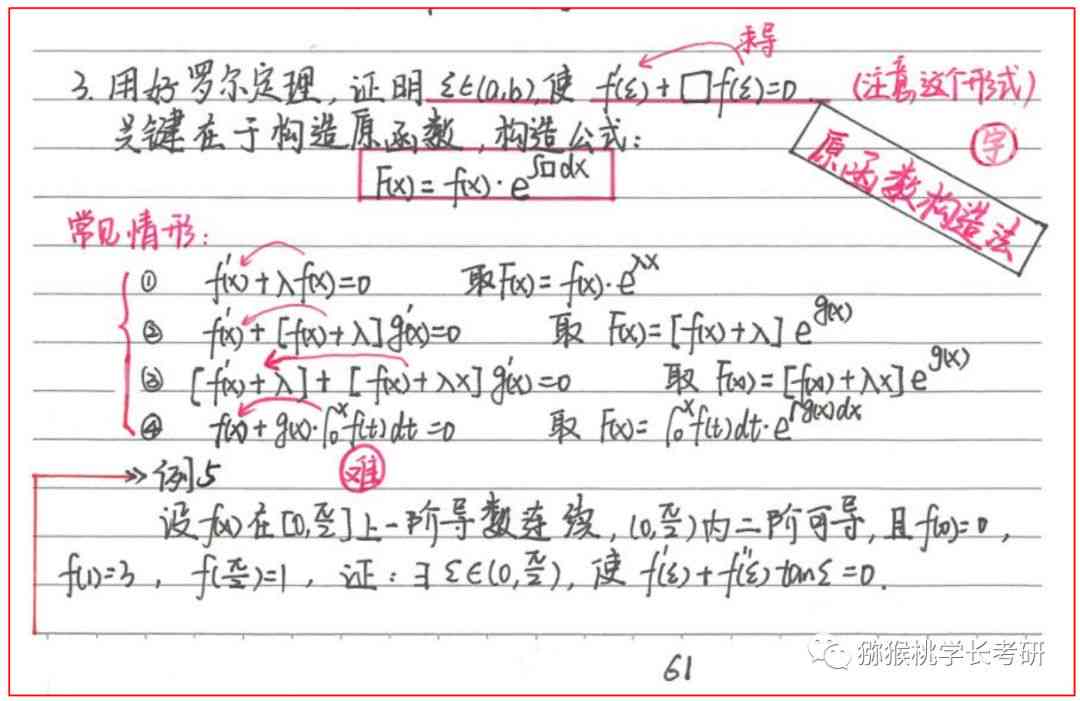 求导
3. 用好罗尔定理,证明 ξ∈(a,b),使 f'(ξ)+□f(ξ)=0. (注意这个形式)
关键在于构造原函数,构造公式:
F(x)=f(x)·e^{∫□dx}
原函数构造法
常见情形:
① f'(x)+λf(x)=0 取F(x)=f(x)·e^{λx}
② f'(x)+[f(x)+λ]g'(x)=0 取 F(x)=[f(x)+λ]e^{g(x)}
③ [f'(x)+λ]+[f(x)+λx]g'(x)=0 取 F(x)=[f(x)+λx]e^{g(x)}
④ f(x)+g(x)·∫₀ˣf(t)dt=0 取 F(x)=∫₀ˣf(t)dt·e^{∫g(x)dx}
例5 难
设f(x)在[0,π/2]上一阶导数连续,(0,π/2)内二阶可导,且f(0)=0,
f(1)=3, f(π/2)=1, 证:∃ξ∈(0,π/2),使 f'(ξ)+f''(ξ)tanξ=0.
61
猕猴桃学长考研